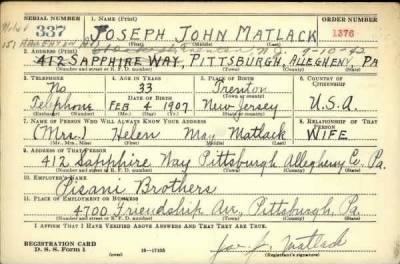 SERIAL NUMBER 1. NAME (Print) ORDER NUMBER
337 JOSEPH JOHN MATLACK 1376
(First) (Middle) (Last)
9-10-42
2. ADDRESS (Print)
412 SAPPHIRE WAY, PITTSBURGH, ALLEGHENY, PA
(Number and street or R. F. D. number) (Town) (County) (State)
3. TELEPHONE 4. AGE IN YEARS 5. PLACE OF BIRTH 6. COUNTRY OF CITIZENSHIP
No 33 Trenton
(Town or county)
DATE OF BIRTH
Telephone FEB 4 1907 New Jersey U.S.A.
(Exchange) (Number) (Mo.) (Day) (Yr.) (State or country)
7. NAME OF PERSON WHO WILL ALWAYS KNOW YOUR ADDRESS 8. RELATIONSHIP OF THAT PERSON
(Mrs.) Helen May Matlack WIFE
(Mr., Mrs., Miss) (First) (Middle) (Last)
9. ADDRESS OF THAT PERSON
412 Sapphire Way Pittsburgh Allegheny Co. Pa.
(Number and street or R. F. D. number) (Town) (County) (State)
10. EMPLOYER'S NAME
Pisani Brothers
11. PLACE OF EMPLOYMENT OR BUSINESS
4700 Friendship Av., Pittsburgh, Pa.
(Number and street or R. F. D. number) (Town) (County) (State)
I AFFIRM THAT I HAVE VERIFIED ABOVE ANSWERS AND THAT THEY ARE TRUE.
REGISTRATION CARD
D. S. S. Form 1 16—17105 (over) Jos. J. Matlack
(Registrant's signature)